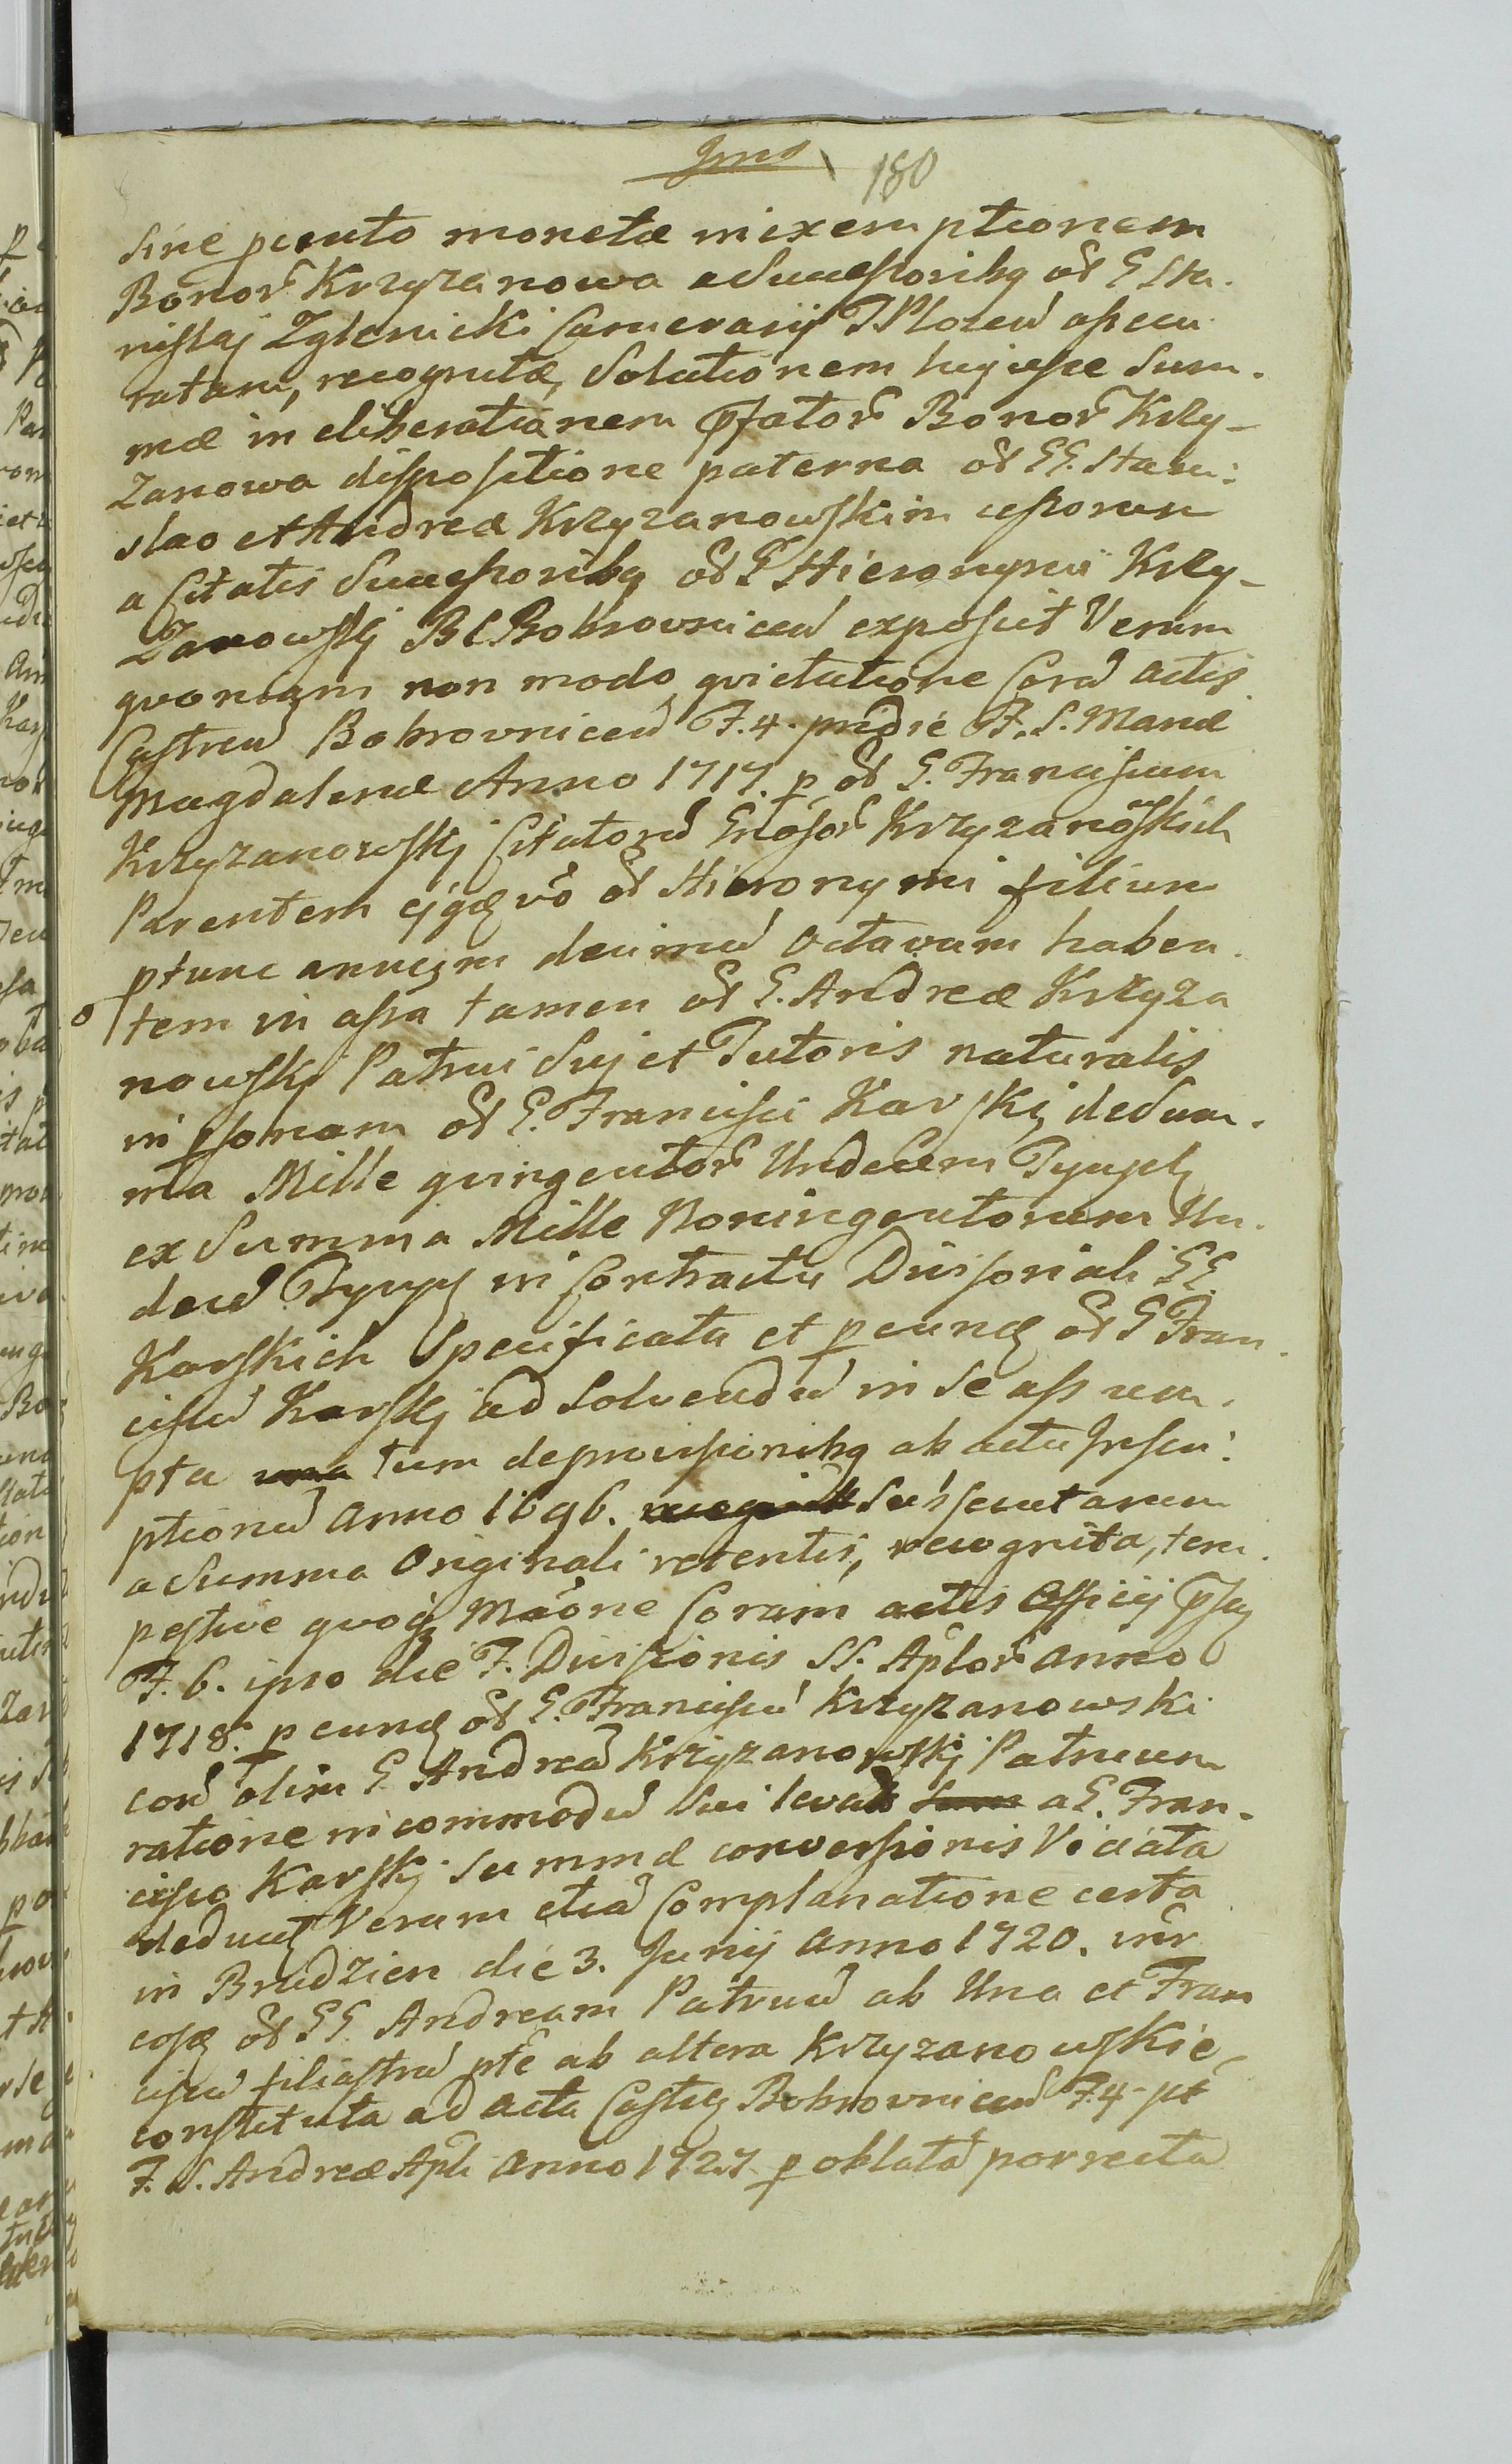 180
sine penuto monetæ in exemptionem
Bonor̃ Krzyzanowa a Successoribq̃ ol̃ G Sta-
nislaj Zglenicki Camerarij T Plocen̄ assecu
ratam, recognitæ, Solutionem hujusce Sum-
mæ in liberationem p̃fator̃ Bonor̃ Krzy-
zanowa dispositione paterna ol̃ GG. Stani-
slao et Andreæ Krzyzanowskim usporum
a Citatis Successoribq̃ ol̃ G Hieronymi Krzy-
zanowskj B C Bobrovnicen̄ exposuit Verum
qvoniam non modo qvietatione Corā actis
Castren̄ Bobrovnicen̄ F. 4. pridie F. S. Mariæ
Magdalenæ Anno 1717. p ol̃ G. Franciscum
Krzyzanowskj Citatorū Gnosor̃ Krzyzanoskich
Parentem ejgq̃ vō ol̃ Hieronymi filium
ptunc annum decimū octavum haben-
tem in assa tamen ol̃ G. Andreæ Krzyza
nowskj Patrui Suj et Tutoris naturalis
in psonam ol̃ G. Francisci Karskj de Sum-
ma Mille qvingentor̃ Undecem Tynph
ex Summa Mille Noningentorum Un-
decē Tynph in Contractu Divisoriali GG.
Karskich Specificata et p eunđ ol̃ G Fran-
ciscū Karskj ad Solvendū in Se assum-
pta tum de provisionibq̃ ab actu Inscri-
ptionū Anno 1696. subsecutarum
a Summa Originali retentis, recognita, tem-
pestive qvoq̃ Mõne Coram actis Officij p̃sq̃
F. 6. ipso die F. Divisionis SS. Aplor̃ Anno
1718. p eunđ ol̃ G. Franciscū Krzyzanowski
con̄ olim G. Andreā Krzyzanowskj Patruum
ratione incommodū Sui levatæ a G. Fran-
cisco Karskj Summæ conversionis Viciata
deducta Verum etiā Complanatione certa
in Brudzien die 3. Junij Anno 1720. int̃r
eosđ ol̃ GG. Andream Patruū ab Una et Fran
ciscū filiastrū pt̃e ab altera Krzyzanowskie
constituta ad acta Castr̃ Bobrovnicen̄ F. 4. pt
F. S. Andreæ Apli Anno 1727 p oblatā porrecta